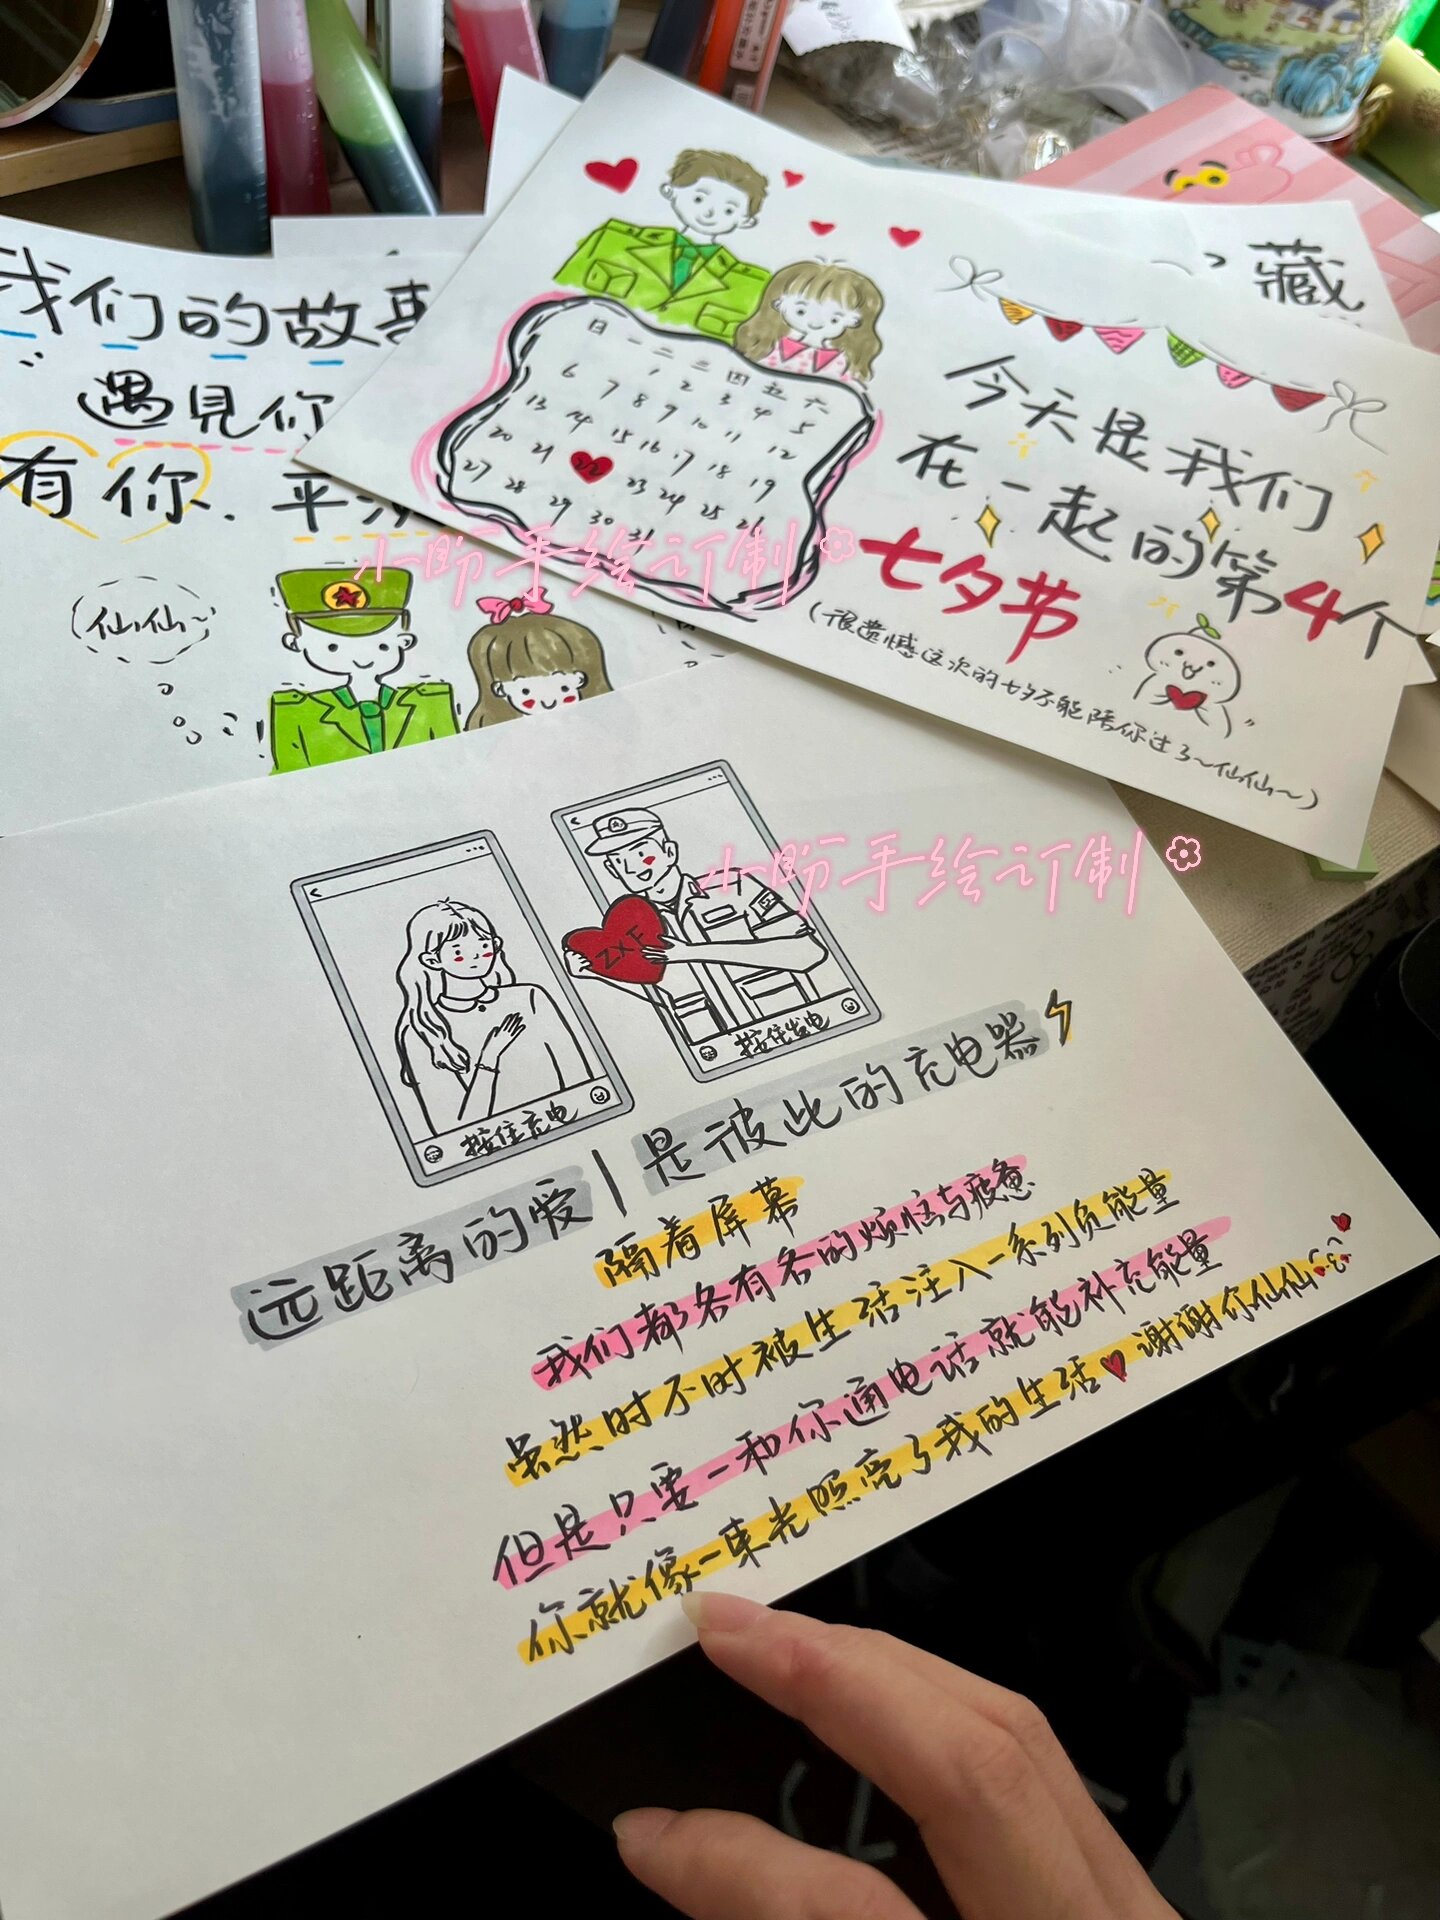 藏
今天是我们
在一起的第4个
七夕节
(很遗憾这次的七夕不能陪你过了~仙仙~)
日 一 二 三 四 五 六
1 2 3 4 5
6 7 8 9 10 11 12
13 14 15 16 17 18 19
20 21 22 23 24 25 26
27 28 29 30 31
我们的故事
遇見你
有你.平
仙仙~
小盼手绘订制
小盼手绘订制
ZXF
按住充电
按住发电
远距离的爱|是彼此的充电器
隔着屏幕
我们都各有各的烦恼与疲惫
虽然时不时被生活注入一系列负能量
但是只要一和你通电话就能补充能量
你就像一束光照亮了我的生活 谢谢你仙仙